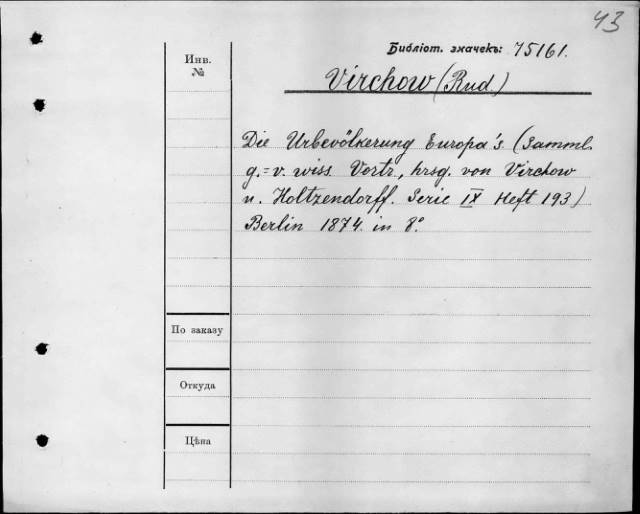 43
Библіот. значекъ: 75161.
Инв.
№
Virchow (Rud.)
Die Urbevölkerung Europa's. (Samml.
g.=v. wiss. Vortr., hrsg. von Virchow
u. Holtzendorff. Serie IX Heft 193)
Berlin 1874. in 8°.
По заказу
Откуда
Цѣна